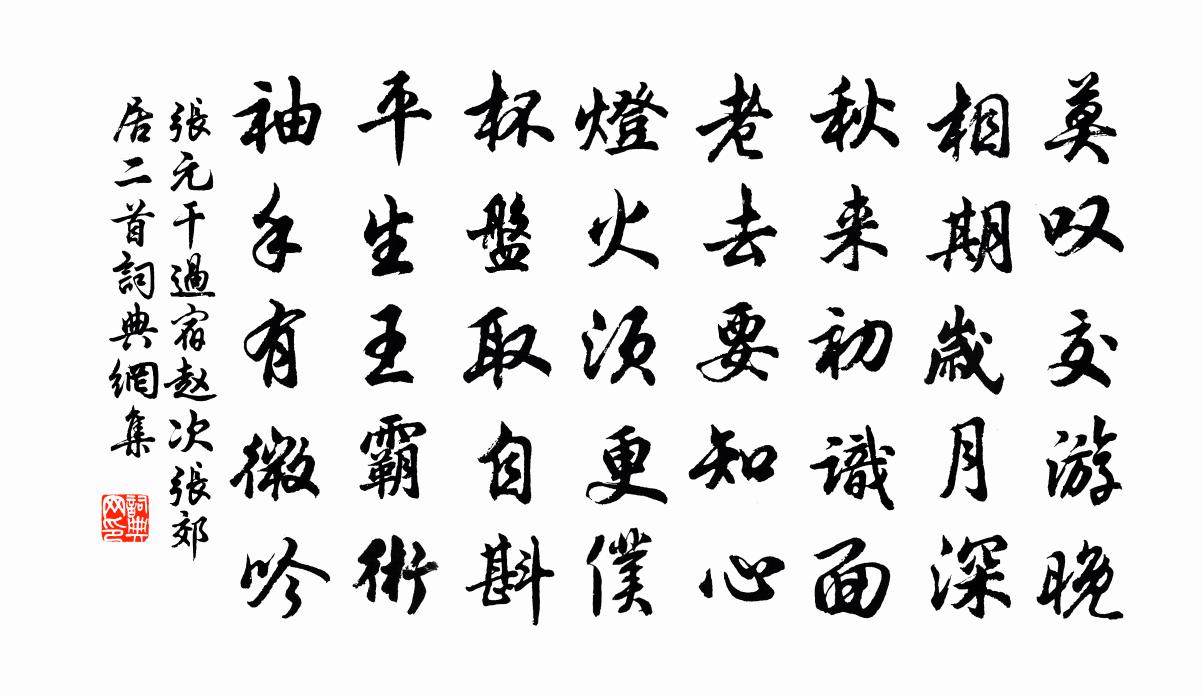 莫叹交游晚
相期歲月深
秋来初識面
老去要知心
燈火须更僕
杯盤取自斟
平生王霸術
袖手有微吟
張元干過宿趙次張郊
居二首詞典網集
詞典网印